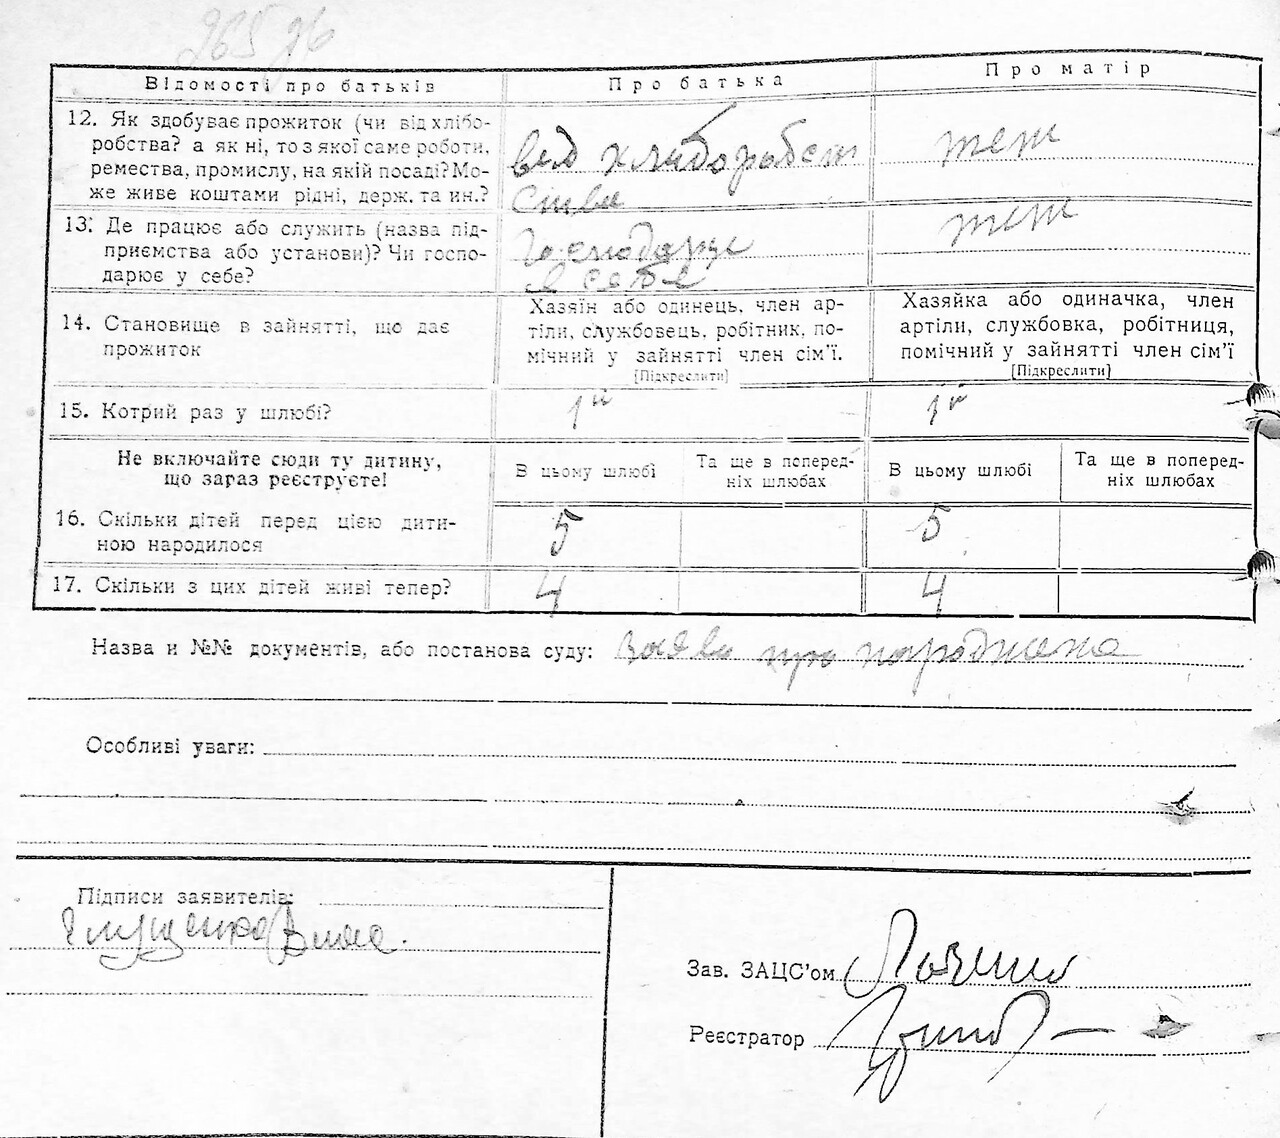 Відомості про батьків
Про батька
Про матір
12. Як здобуває прожиток (чи від хлібо-
робства? а як ні, то з якої саме роботи,
ремества, промислу, на якій посаді? Мо-
же живе коштами рідні, держ. та ин.?
від хліборобст
ства
теж
13. Де працює або служить (назва під-
приємства або установи)? Чи госпо-
дарює у себе?
Господарує
в себе
теж
14. Становище в зайнятті, що дає
прожиток
Хазяїн або одинець, член ар-
тіли, службовець, робітник, по-
мічний у зайнятті член сім'ї.
[Підкреслити]
Хазяйка або одиначка, член
артіли, службовка, робітниця,
помічний у зайнятті член сім'ї
[Підкреслити]
15. Котрий раз у шлюбі?
1й
1й
Не включайте сюди ту дитину,
що зараз реєструєте!
В цьому шлюбі
Та ще в поперед-
ніх шлюбах
В цьому шлюбі
Та ще в поперед-
ніх шлюбах
16. Скільки дітей перед цією дити-
ною народилося
5
5
17. Скільки з цих дітей живі тепер?
4
4
Назва и №№ документів, або постанова суду: Заява про
Особливі уваги:
Підписи заявителів:
Глущенко
Зав. ЗАЦС'ом
Реєстратор